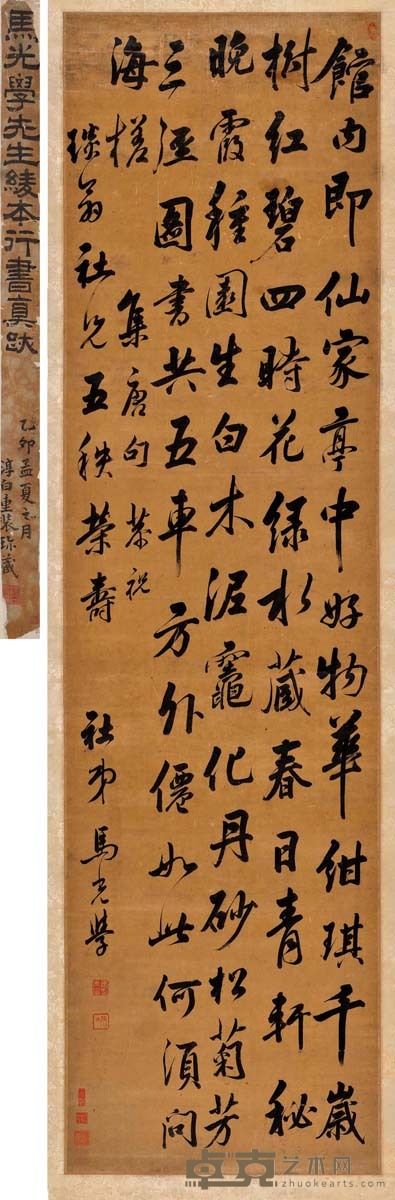 館內即仙家亭中好物華紺琪千歲
樹紅碧四時花綠水藏春日青軒秘
晚霞種園生白木泥竈化丹砂松菊芳
三徑圖書共五車方外僊如此何須問
海槎
集唐句恭祝
琰翁社兄五秩榮壽
社弟馬光學
馬光學先生綾本行書真跡
乙卯孟夏之月
淳白重裝珍藏
卓克艺术网
www.zhuokearts.com